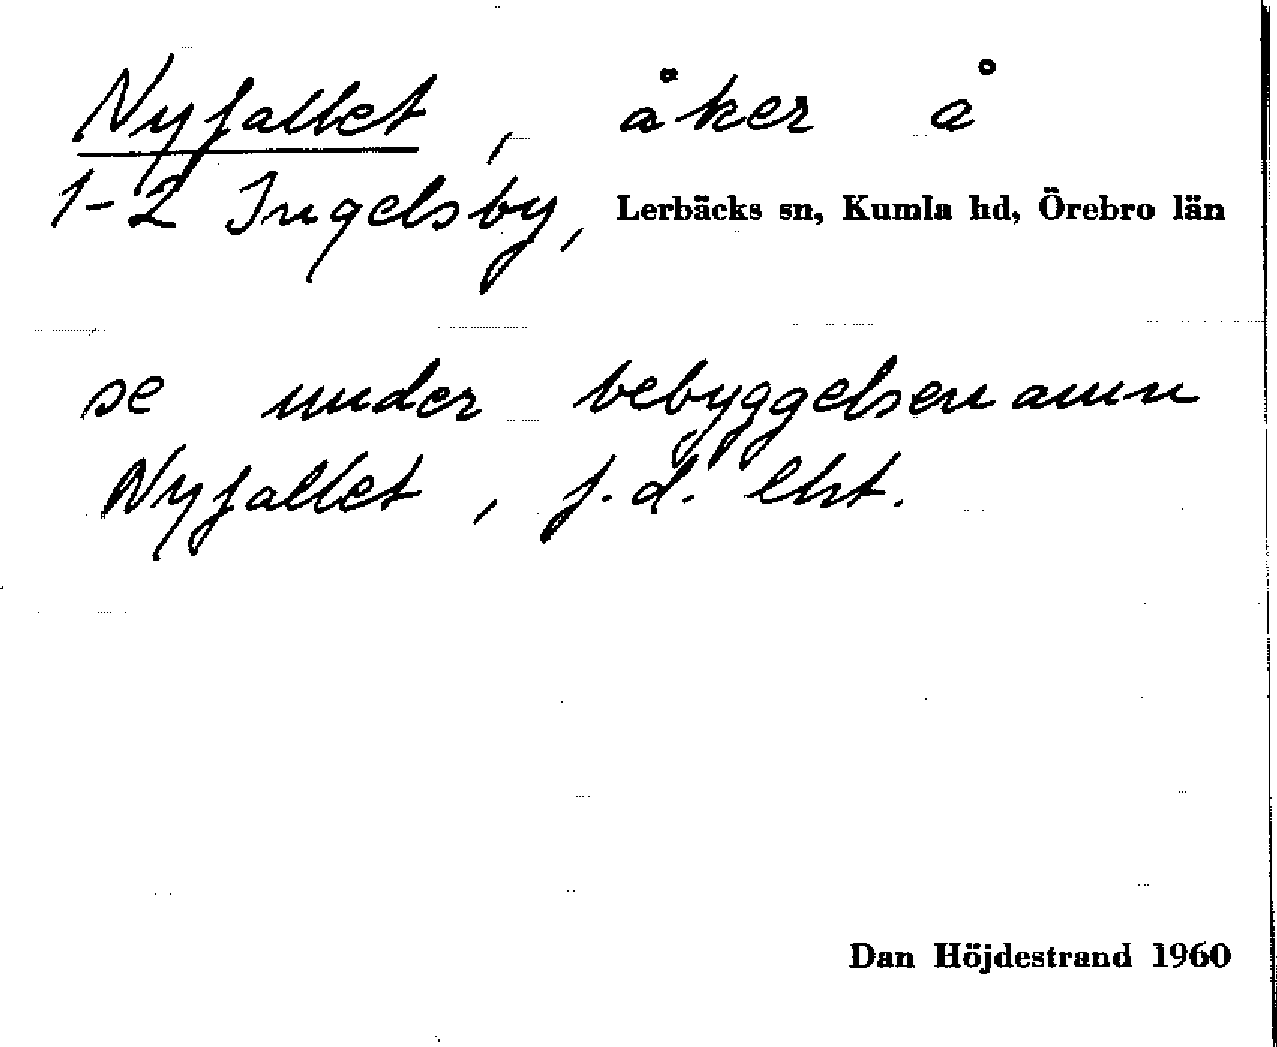 Nyfallet, åker å
1-2 Ingelsby, Lerbäcks sn, Kumla hd, Örebro län
se under bebyggelsenamn
Nyfallet, f.d. lht.
Dan Höjdestrand 1960